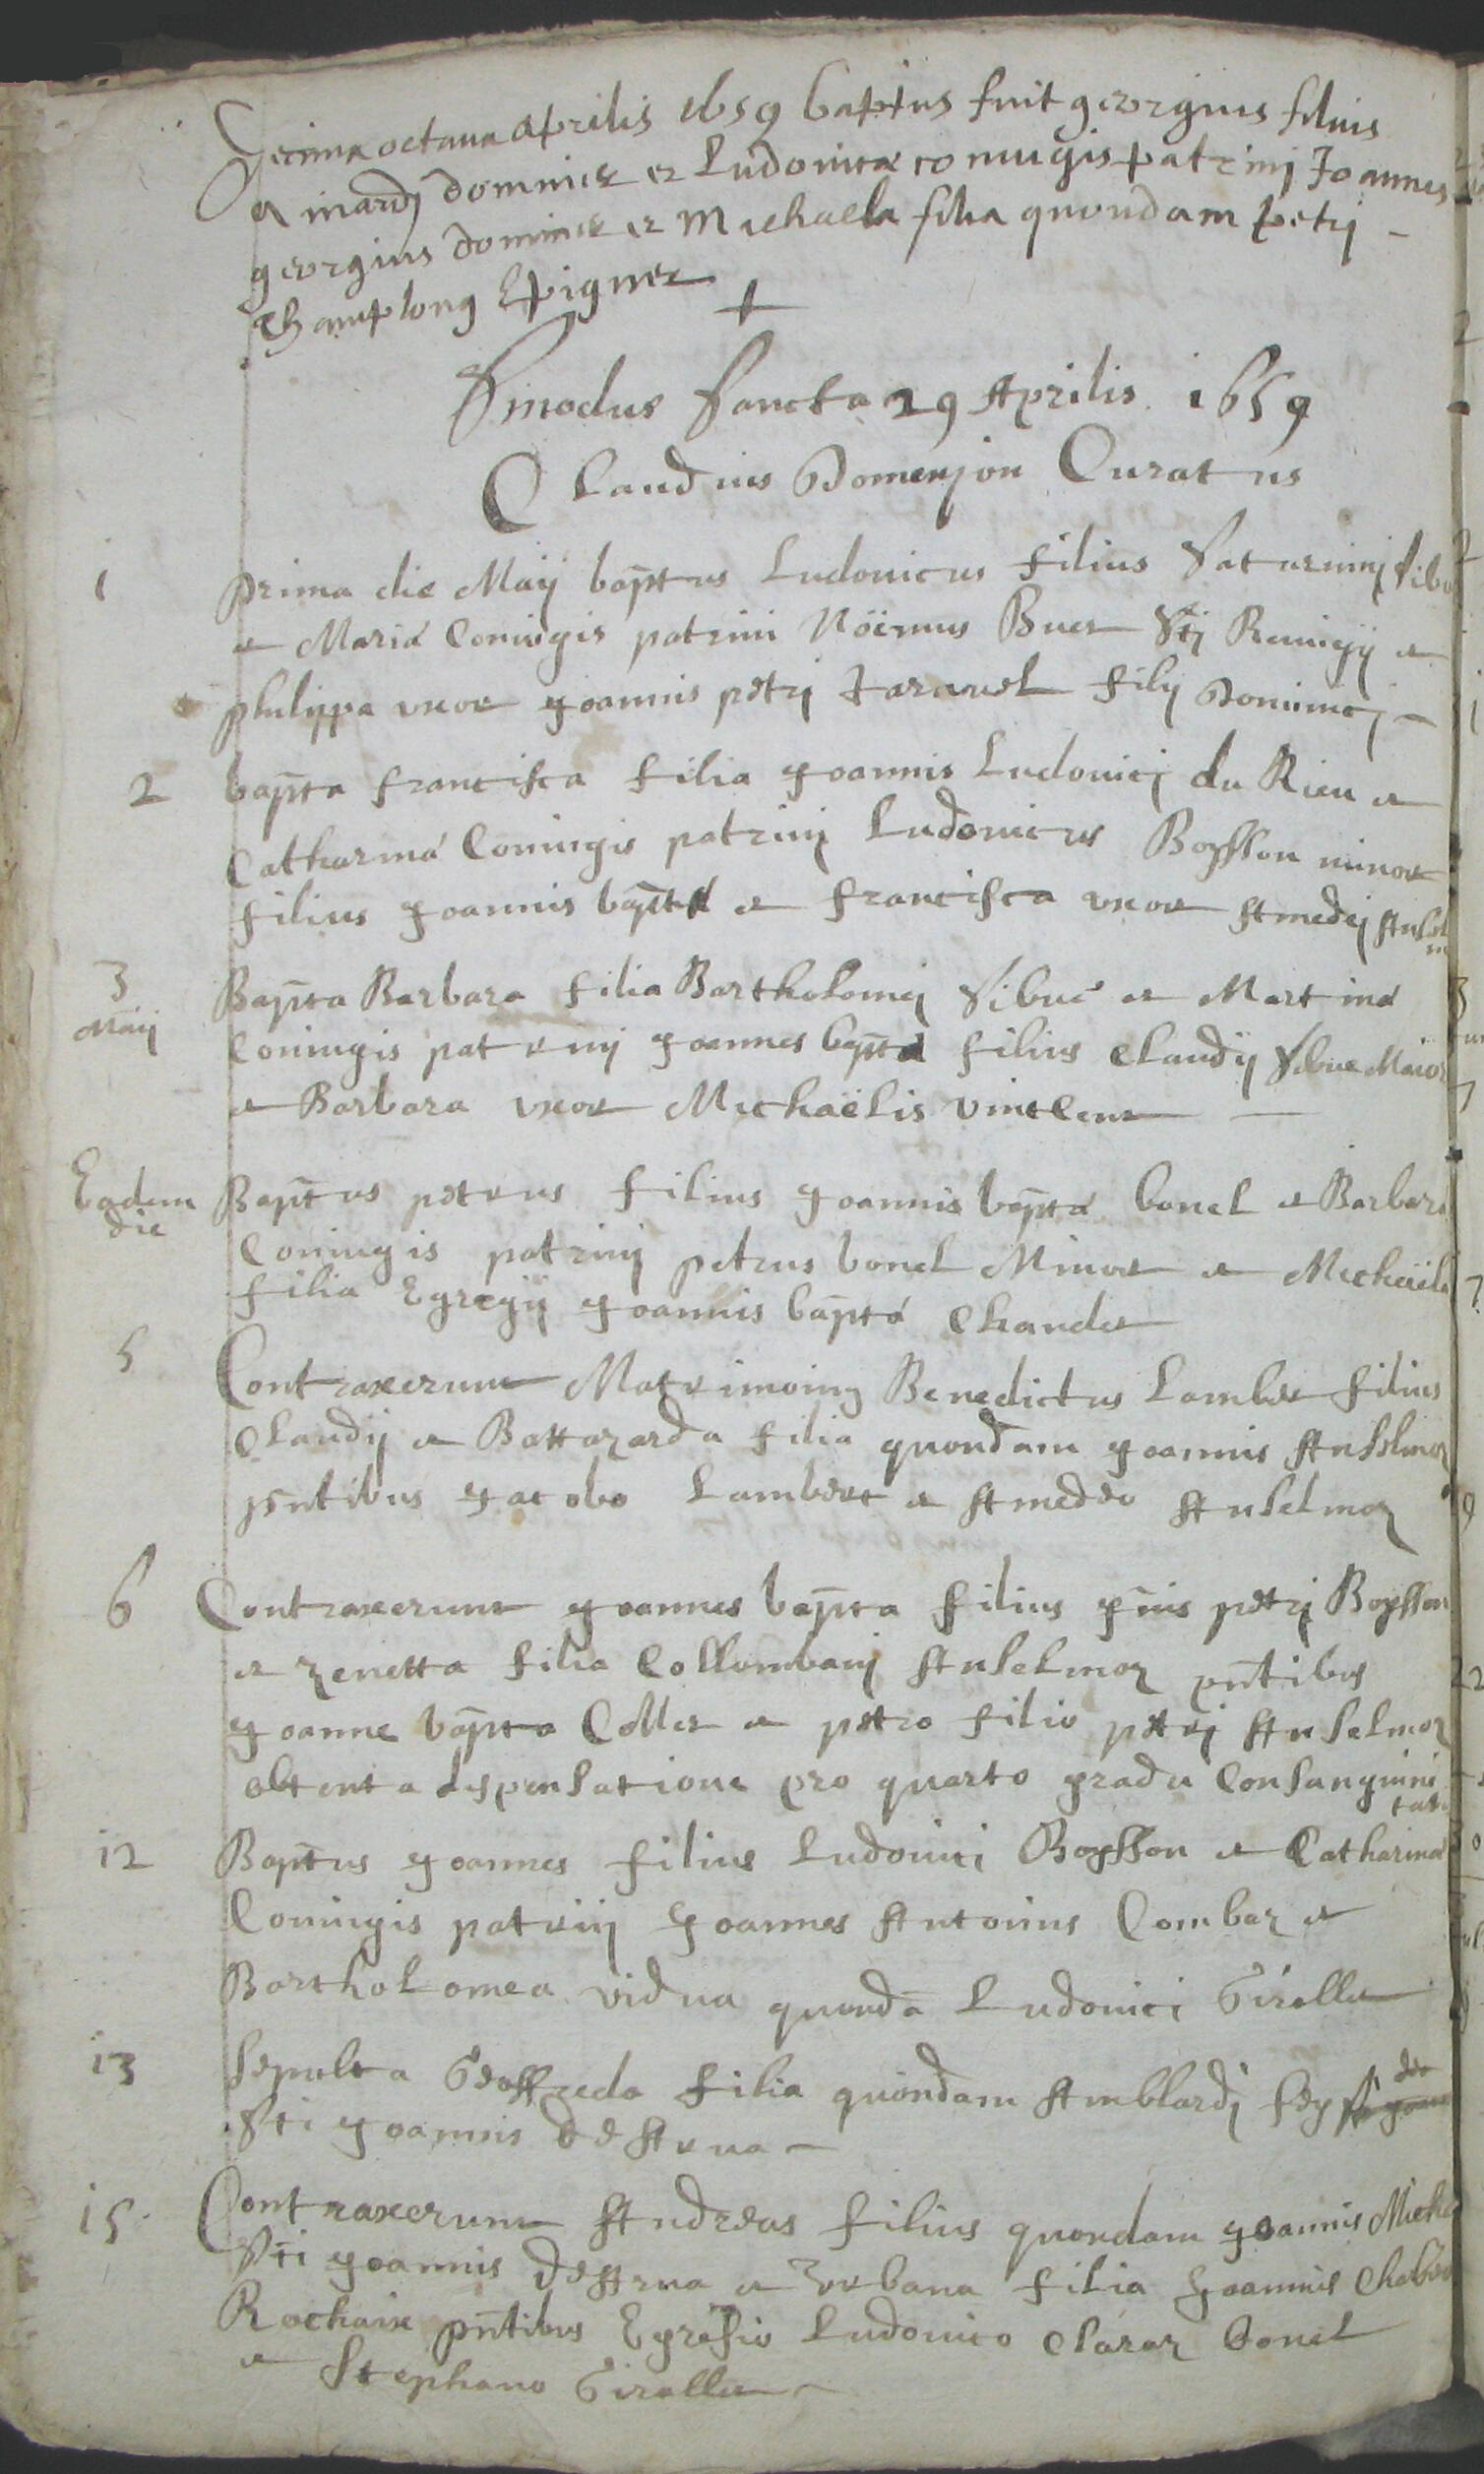 Decima octava Aprilis 1659 baptus fuit georgius filius
Aimardj dominiet et Ludovicæ coniugis patrinj Joannes
georgius dominiet et Michaela filia quondam petrj -
Champlong Epignet
Sinodus Sancta 29 Aprilis 1659
Claudius Domenjon Curatus
1 Prima die Maij baptus Ludovicus filius Saturninj Sibu
et Maria Coniugis patrini Nöemus Buet Sti Remigij et
philippa uxor Joannis petrj Taravel filij Dominicj -
2 bapta francisca filia Joannis Ludovicj du Rieu et
Catharina Coniugis patrinj Ludovicus Boysson minor
filius Joannis bapta et francisca uxor Amedej Anselm
3 Maij Bapta Barbara filia Bartholomej Sibué et Martina
Coniugis patrinj Joannes bapta filius Claudij Sibue Maior
et Barbara uxor Michaëlis Vincent
Eadem die Baptus petrus filius Joannis bapta bonel et Barbara
Coniugis patrinj petrus bonel Minor et Michaëla
filia Egregij Joannis bapta Chandet
5 Contraxerunt Matrimoinj Benedictus Lambert filius
Claudij et Battazarda filia quondam Joannis Anselmoz
pntibus Jacobo Lambert et Amedeo Anselmoz
6 Contraxerunt Joannes bapta filius Jnis petrj Boysson
et Zenetta filia Collombanj Anselmoz pntibus
Joanne bapta Collet et petro filio petrj Anselmoz
obtenta dispensatione pro quarto gradu Consanguini
tatis
12 Baptus Joannes filius Ludovici Boysson et Catharina
Coniugis patrinj Joannes Antonius Combaz et
Bartholomea vidua quonda Ludovici Girollet
13 Sepulta Geoffreda filia quondam Amblardj
Sti Joannis de Arva -
15 Contraxerunt Andreas filius quondam Joannis Micha
Sti Joannis de Arva et Urbana filia Joannis
Rochaix pntibus Egregio Ludovico Claraz bonel
et Stephano Girollet -